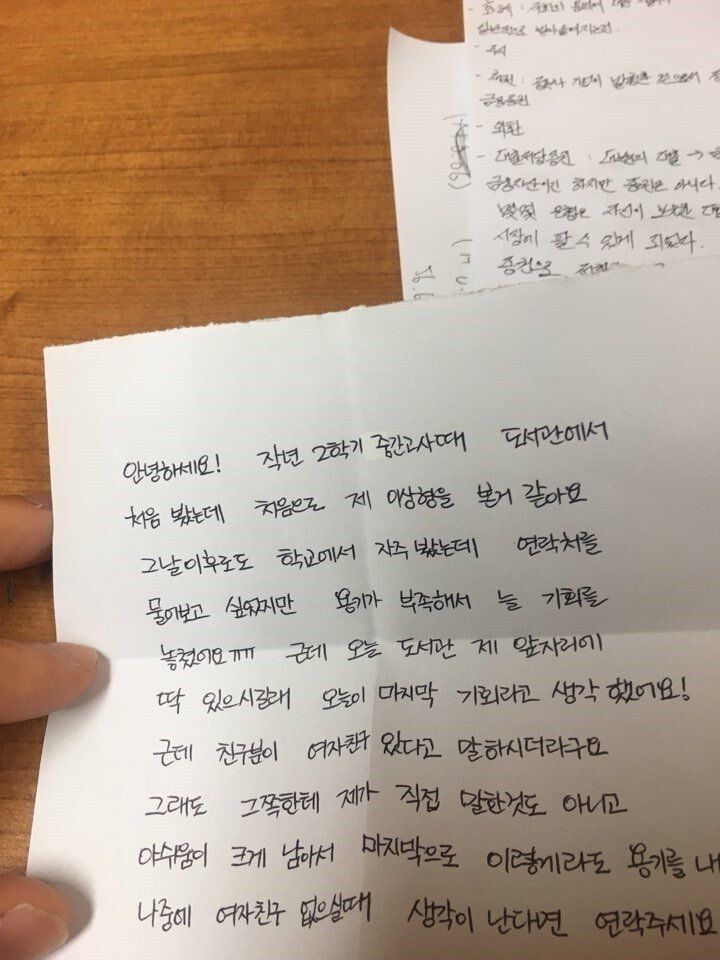 일반적으로 받아들여지는것.
금융증권
- 외환
- 대출저당증권 : 다수의 대출 →
금융자산이긴 하지만 증권은 아니다.
몇몇 은행은 자신이 보유한
시장에 팔 수 있게 되었다.
증권으로
안녕하세요! 작년 2학기 중간고사때 도서관에서
처음 봤는데 처음으로 제 이상형을 본거 같아요
그날이후로도 학교에서 자주 봤는데 연락처를
물어보고 싶었지만 용기가 부족해서 늘 기회를
놓쳤어요ㅠㅠ 근데 오늘 도서관 제 앞자리에
딱 있으시길래 오늘이 마지막 기회라고 생각 했어요!
근데 친구분이 여자친구 있다고 말하시더라구요
그래도 그쪽한테 제가 직접 말한것도 아니고
아쉬움이 크게 남아서 마지막으로 이렇게라도 용기를 내
나중에 여자친구 없으실때 생각이 난다면 연락주세요